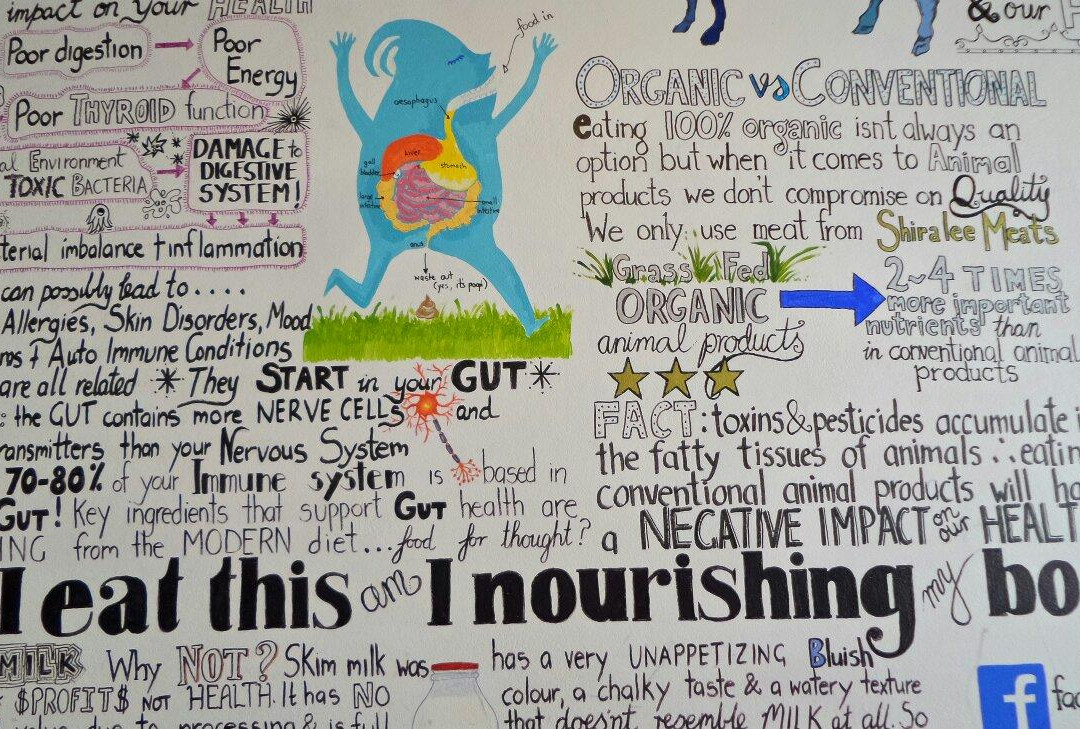 impact on your HEALTH
Poor digestion
Poor
Energy
Poor THYROID function
al Environment
TOXIC BACTERIA
DAMAGE to
DIGESTIVE
SYSTEM!
terial imbalance + inflammation
can possibly lead to....
Allergies, Skin Disorders, Mood
ms & Auto Immune Conditions
are all related * They START in your GUT *
: the GUT contains more NERVE CELLS and
ransmitters than your Nervous System
70-80% of your Immune system is based in
GUT! Key ingredients that support GUT health are
ING from the MODERN diet... food for thought?
food in
oesophagus
liver
gall
bladder
stomach
large
intestine
small
intestine
anus
waste out
(yes, it's poop!)
& our
ORGANIC vs CONVENTIONAL
eating 100% organic isnt always an
option but when it comes to Animal
products we don't compromise on Quality
We only use meat from Shiralee Meats
Grass Fed
ORGANIC
animal products
2-4 TIMES
more important
nutrients than
in conventional animal
products
FACT: toxins & pesticides accumulate i
the fatty tissues of animals ∴ eatin
conventional animal products will ha
a NEGATIVE IMPACT on our HEALT
I eat this am I nourishing my bo
MILK Why NOT? Skim milk was
$PROFIT$ NOT HEALTH. It has NO
value due to processing & is full
has a very UNAPPETIZING Bluish
colour, a chalky taste & a watery texture
that does'nt resemble MILK at all. So
f fac